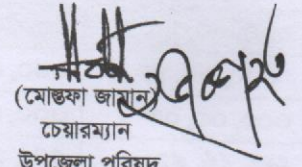 (মোস্তফা জামান)
চেয়ারম্যান
উপজেলা পরিষদ